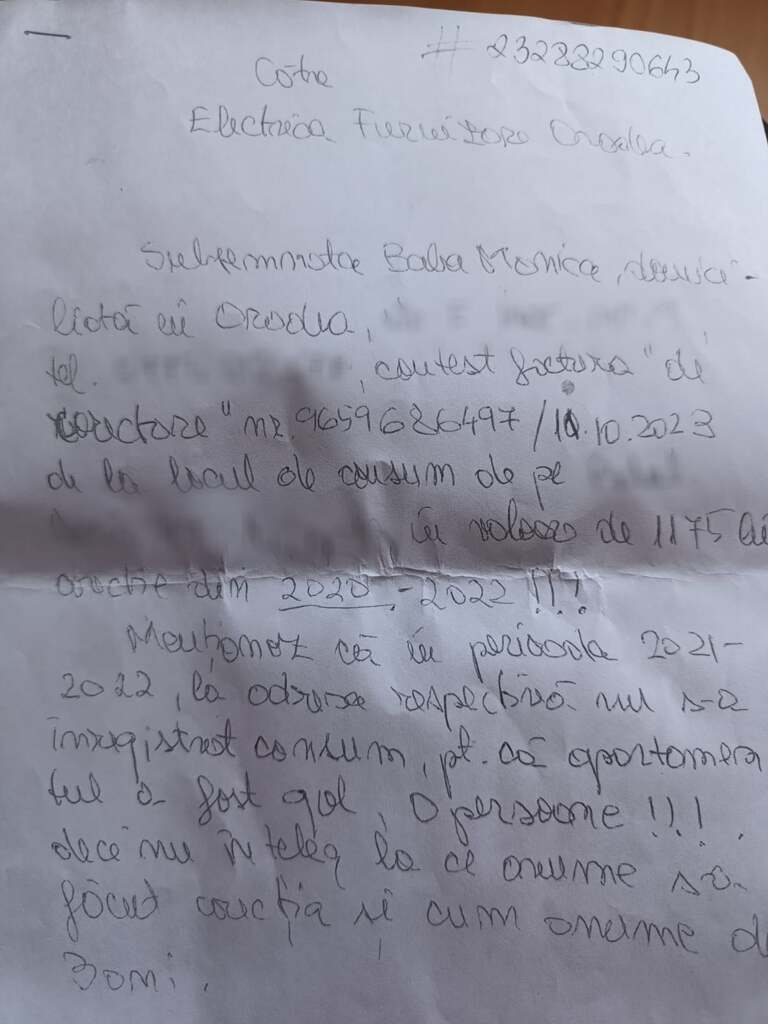 # 23288290643
Către
Electrica Furnizare Oradea.
Subsemnata Baba Monica, domici-
liată în Oradea,
tel. , contest factura "de
corectare" nr. 9659686497/10.10.2023
de la locul de consum de pe
în valoare de 1175 lei
corecție din 2020 - 2022 !!!
Menționez că în perioada 2021-
2022, la adresa respectivă nu s-a
înregistrat consum, pt. că apartamen
tul a fost gol, 0 persoane !!!,
deci nu înțeleg la ce anume s-a
făcut corecția și cum anume de
3 ani.